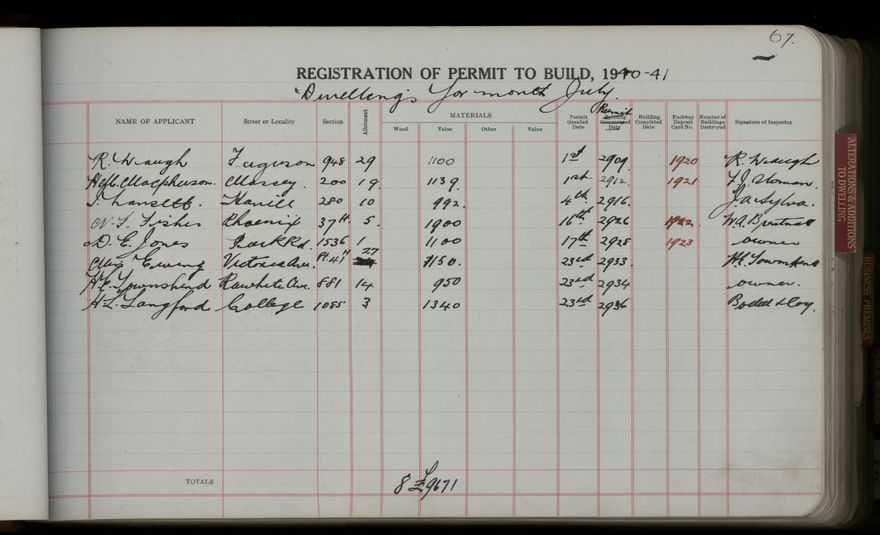 67.
REGISTRATION OF PERMIT TO BUILD, 1940-41
Dwellings for month July
NAME OF APPLICANT Street or Locality Section Allotment MATERIALS Wood Value Other Value Permit Granted Date Permit Building Commenced Date Building Completed Date Footway Deposit Card No. Number of Buildings Destroyed Signature of Inspector
R. Waugh Ferguson 948 29 1100 1st 2909. 1920 R. Waugh
Macpherson. Massey. 200 19. 1139. 1st. 2912. 1921
280 10 992. 4th 2916. J. A. Sylva.
N. F. Fisher Phoenix 37 H. 5. 1900 16th 2926 1922. W. A.
D. E. Jones Park Rd. 1536 1 1100 17th 2928 1923 owner
Miss Ewing Victoria Ave. 27 1150. 23rd 2933. H. E. Townshend
H. E. Townshend Rawhiti Ave. 881 14 950 23rd 2934 owner.
H. L. Langford College 1085 3 1340 23rd 2936
TOTALS 8 £9671
ALTERATIONS & ADDITIONS
TO DWELLING
BUSINESS PREMISES